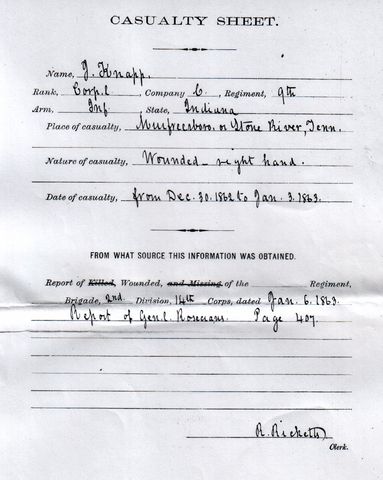 CASUALTY SHEET.
Name, J. Knapp.
Rank, Corp.l, Company C, Regiment, 9th
Arm, Inf, State, Indiana
Place of casualty, Murfreesboro. or Stone River, Tenn.
Nature of casualty, Wounded - right hand.
Date of casualty, from Dec. 30. 1862 to Jan. 3. 1863.
FROM WHAT SOURCE THIS INFORMATION WAS OBTAINED.
Report of Killed, Wounded, and Missing of the Regiment,
Brigade, 2nd Division, 14th Corps, dated Jan. 6. 1863.
Report of Genl. Rosecrans. Page 407.
R. Ricketts
Clerk.